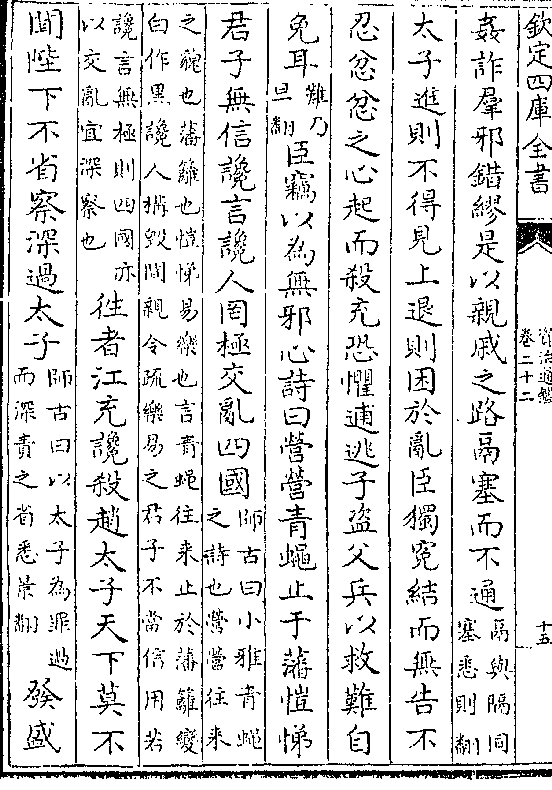 欽定四庫全書
資治通鑑
卷二十二
十五
姦詐羣邪錯繆是以親戚之路鬲塞而不通鬲與隔同塞悉則翻
太子進則不得見上退則困於亂臣獨寃結而無告不
忍忿忿之心起而殺充恐懼逋逃子盜父兵以救難自
免耳難乃旦翻臣竊以為無邪心詩曰營營青蠅止于藩愷悌
君子無信讒言讒人罔極交亂四國師古曰小雅青蠅之詩也營營往来
之皃也藩籬也愷悌易樂也言青蠅往来止於藩籬變白作黑讒人搆毀間親令疏樂易之君子不當信用若
讒言無極則四國亦以交亂宜深察也往者江充讒殺趙太子天下莫不
聞陛下不省察深過太子師古曰以太子為罪過而深責之省悉井翻發盛